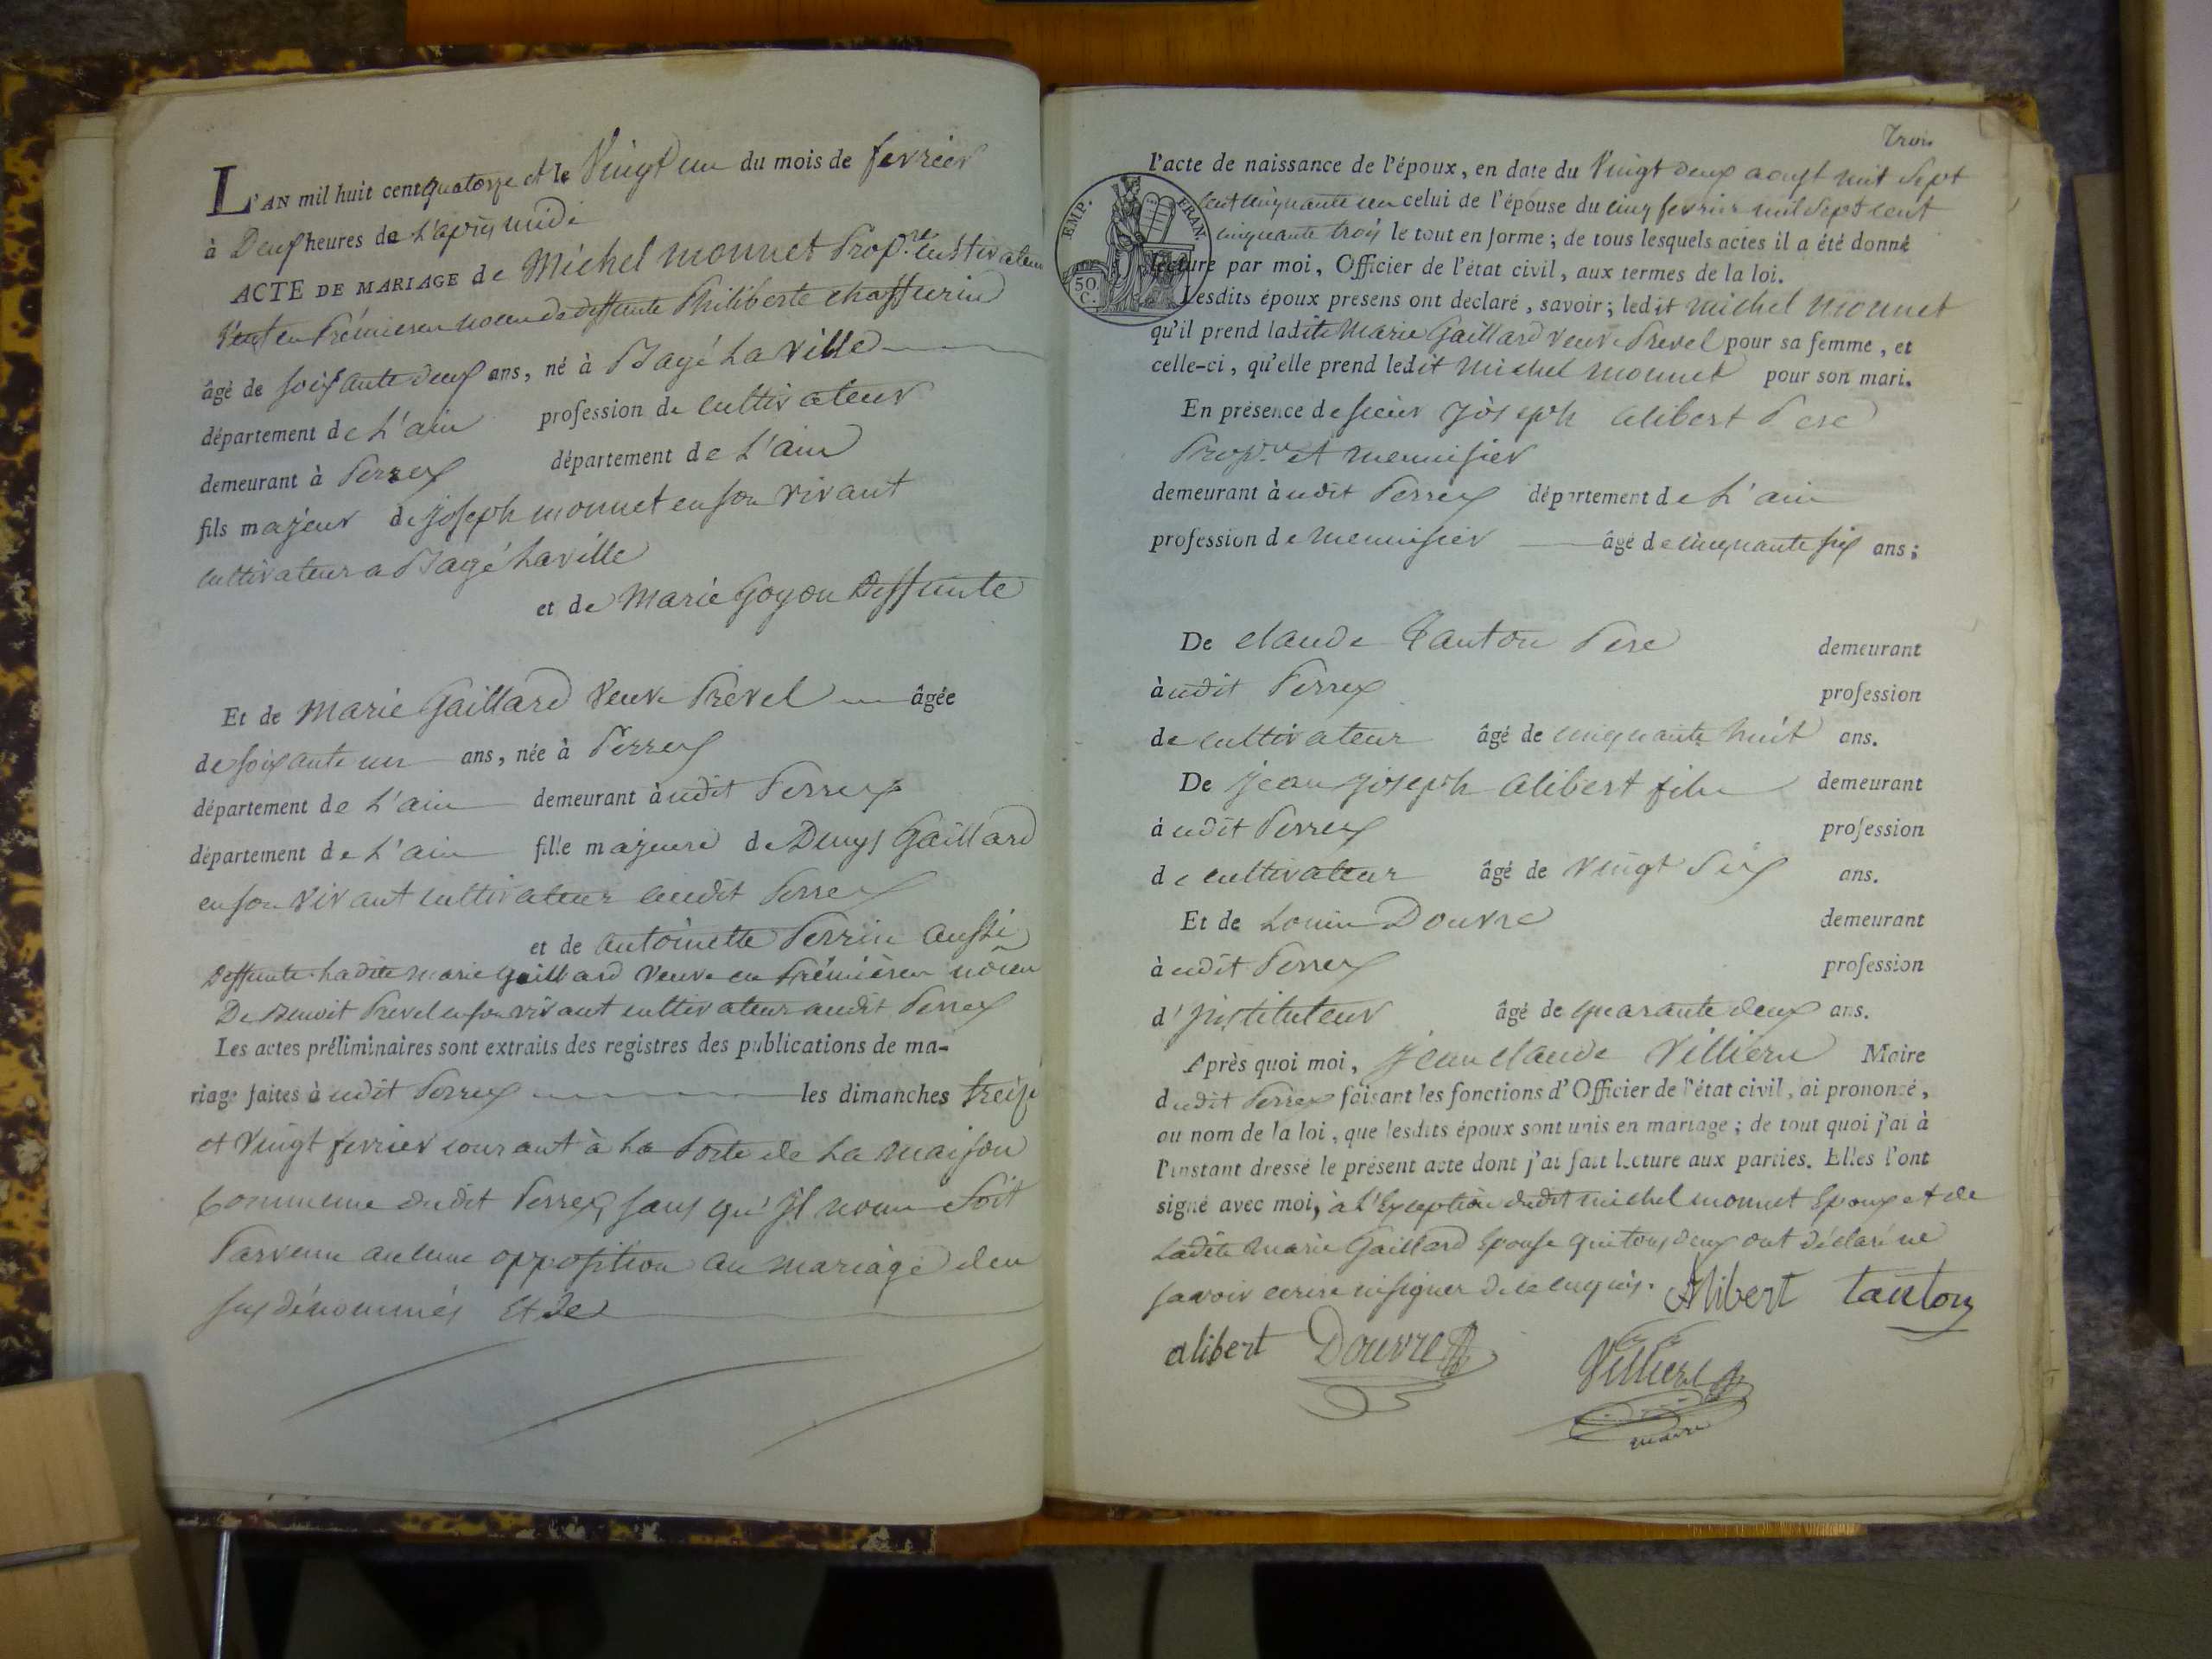 L'AN mil huit cent quatorze et le Vingt un du mois de fevrier
à Deux heures de L'aprés midi
ACTE DE MARIAGE de Michel monnet Prop.re Cultivateur
Veuf en Prémieres noces de deffunte Philiberte chaffurin
âgé de soixante deux ans, né à Bagé La Ville
département de L'ain profession de cultivateur
demeurant à Perrex département de L'ain
fils majeur de joseph monnet en son vivant
cultivateur a Bagé Laville
et de Marie Goyon Deffunte
Et de Marie Gaillard Veuve Prevel âgée
de soixante un ans, née à Perrex
département de L'ain demeurant àudit Perrex
département de L'ain fille majeure de Denys Gaillard
en son vivant cultivateur audit Perrex
et de antoinette Perrin aussi
Deffunte. Ladite marie gaillard Veuve en Prémières noces
De Benoit Prevel en son vivant cultivateur audit Perrex
Les actes préliminaires sont extraits des registres des publications de ma-
riage faites àudit Perrex les dimanches treize
et vingt fevrier courant à La Porte de La maison
Commune dudit Perrex, sans qu'Il nous soit
Parvenu aucune opposition au mariage des
sus dénommés Et de
Trois
l'acte de naissance de l'époux, en date du Vingt deux aoust mil sept
cent cinquante un celui de l'épouse du cinq fevrier mil sept cent
cinquante trois le tout en forme; de tous lesquels actes il a été donné
lecture par moi, Officier de l'état civil, aux termes de la loi.
EMP. FRAN.
50 C.
Lesdits époux présens ont déclaré, savoir; ledit michel monnet
qu'il prend ladite Marie Gaillard veuve Prevel pour sa femme, et
celle-ci, qu'elle prend ledit michel monnet pour son mari.
En présence de sieur Joseph alibert Pere
Prop.re et menuisier
demeurant àudit Perrex département de L'ain
profession de menuisier âgé de cinquante six ans;
De claude Tanton Pere demeurant
àudit Perrex profession
de cultivateur âgé de cinquante huit ans.
De jean joseph alibert fils demeurant
àudit Perrex profession
de cultivateur âgé de vingt six ans.
Et de Louis Douvre demeurant
àudit Perrex profession
d'Instituteur âgé de quarante deux ans.
Après quoi moi, jean claude Villiers Maire
dudit Perrex faisant les fonctions d'Officier de l'état civil, ai prononcé,
au nom de la loi, que lesdits époux sont unis en mariage; de tout quoi j'ai à
l'instant dressé le présent acte dont j'ai fait lecture aux parties. Elles l'ont
signé avec moi, à L'Exception dudit michel monnet Epoux et de
Ladite Marie Gaillard Epouse qui tous deux ont déclaré ne
savoir ecrire ni signer de ce enquis. Alibert tanton
alibert Douvre Villiers
maire